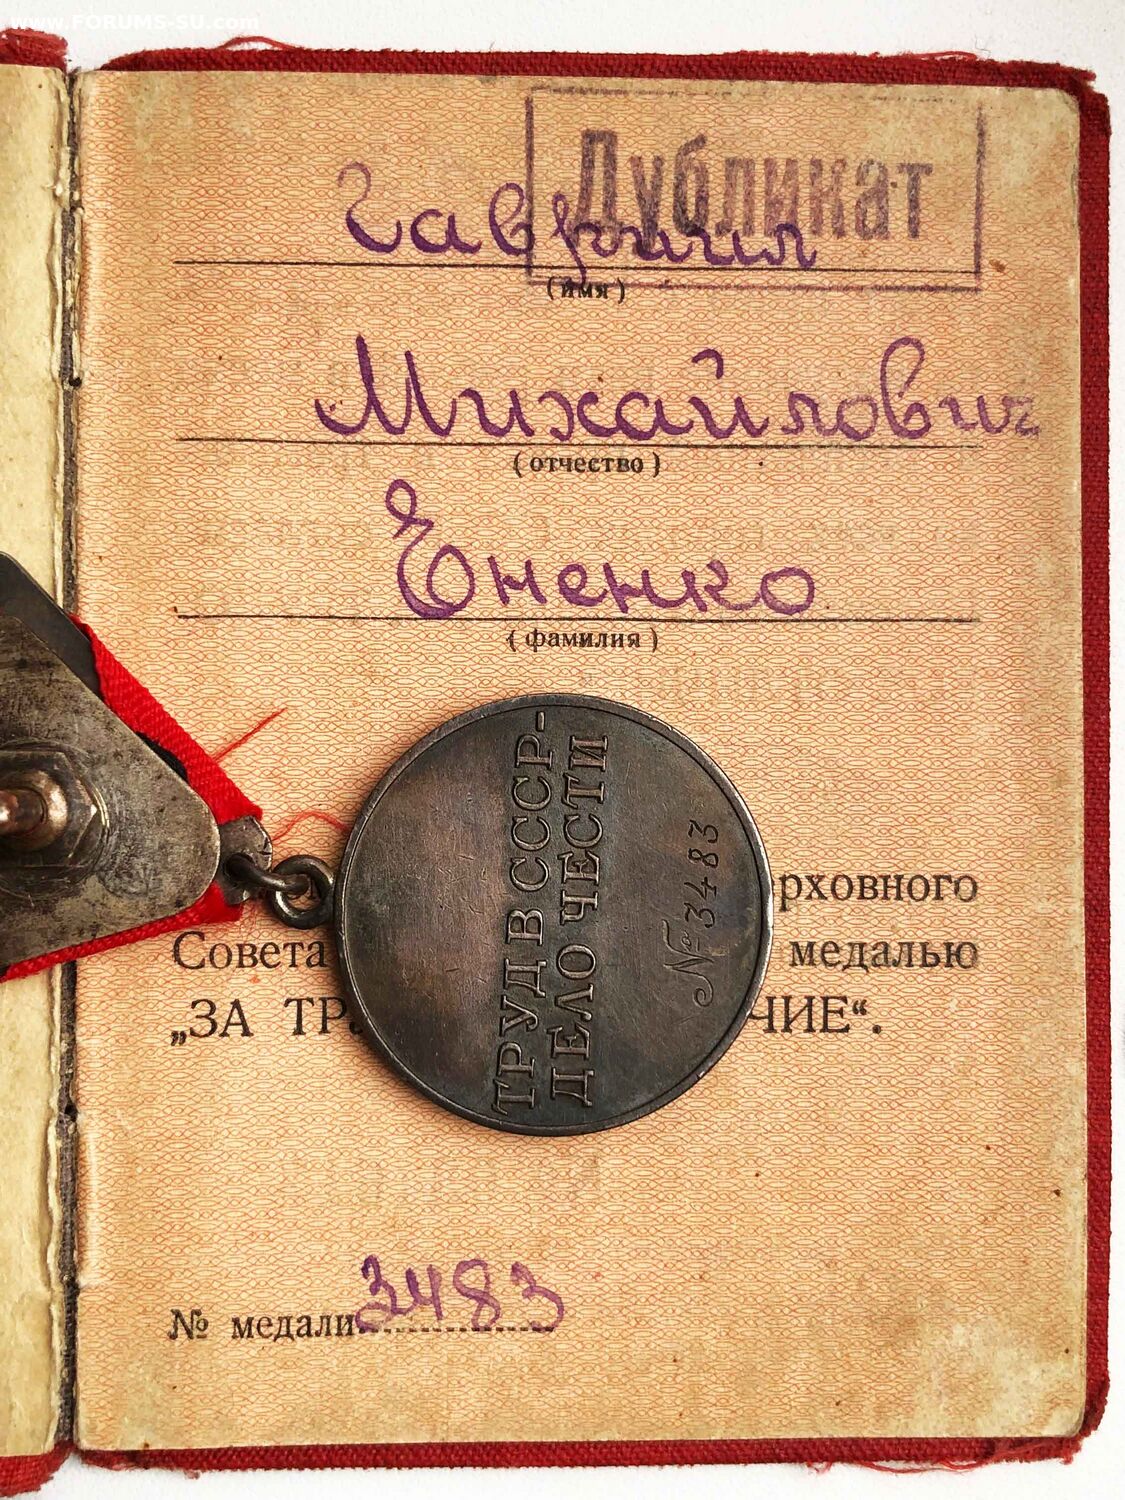 www.FORUMS-SU.com
Дубликат
Гавриил
(имя)
Михайлович
(отчество)
Ененко
(фамилия)
рховного
Совета медалью
„ЗА ТР ЧИЕ“.
ТРУД В СССР-
ДЕЛО ЧЕСТИ
№ 3483
№ медали 3483